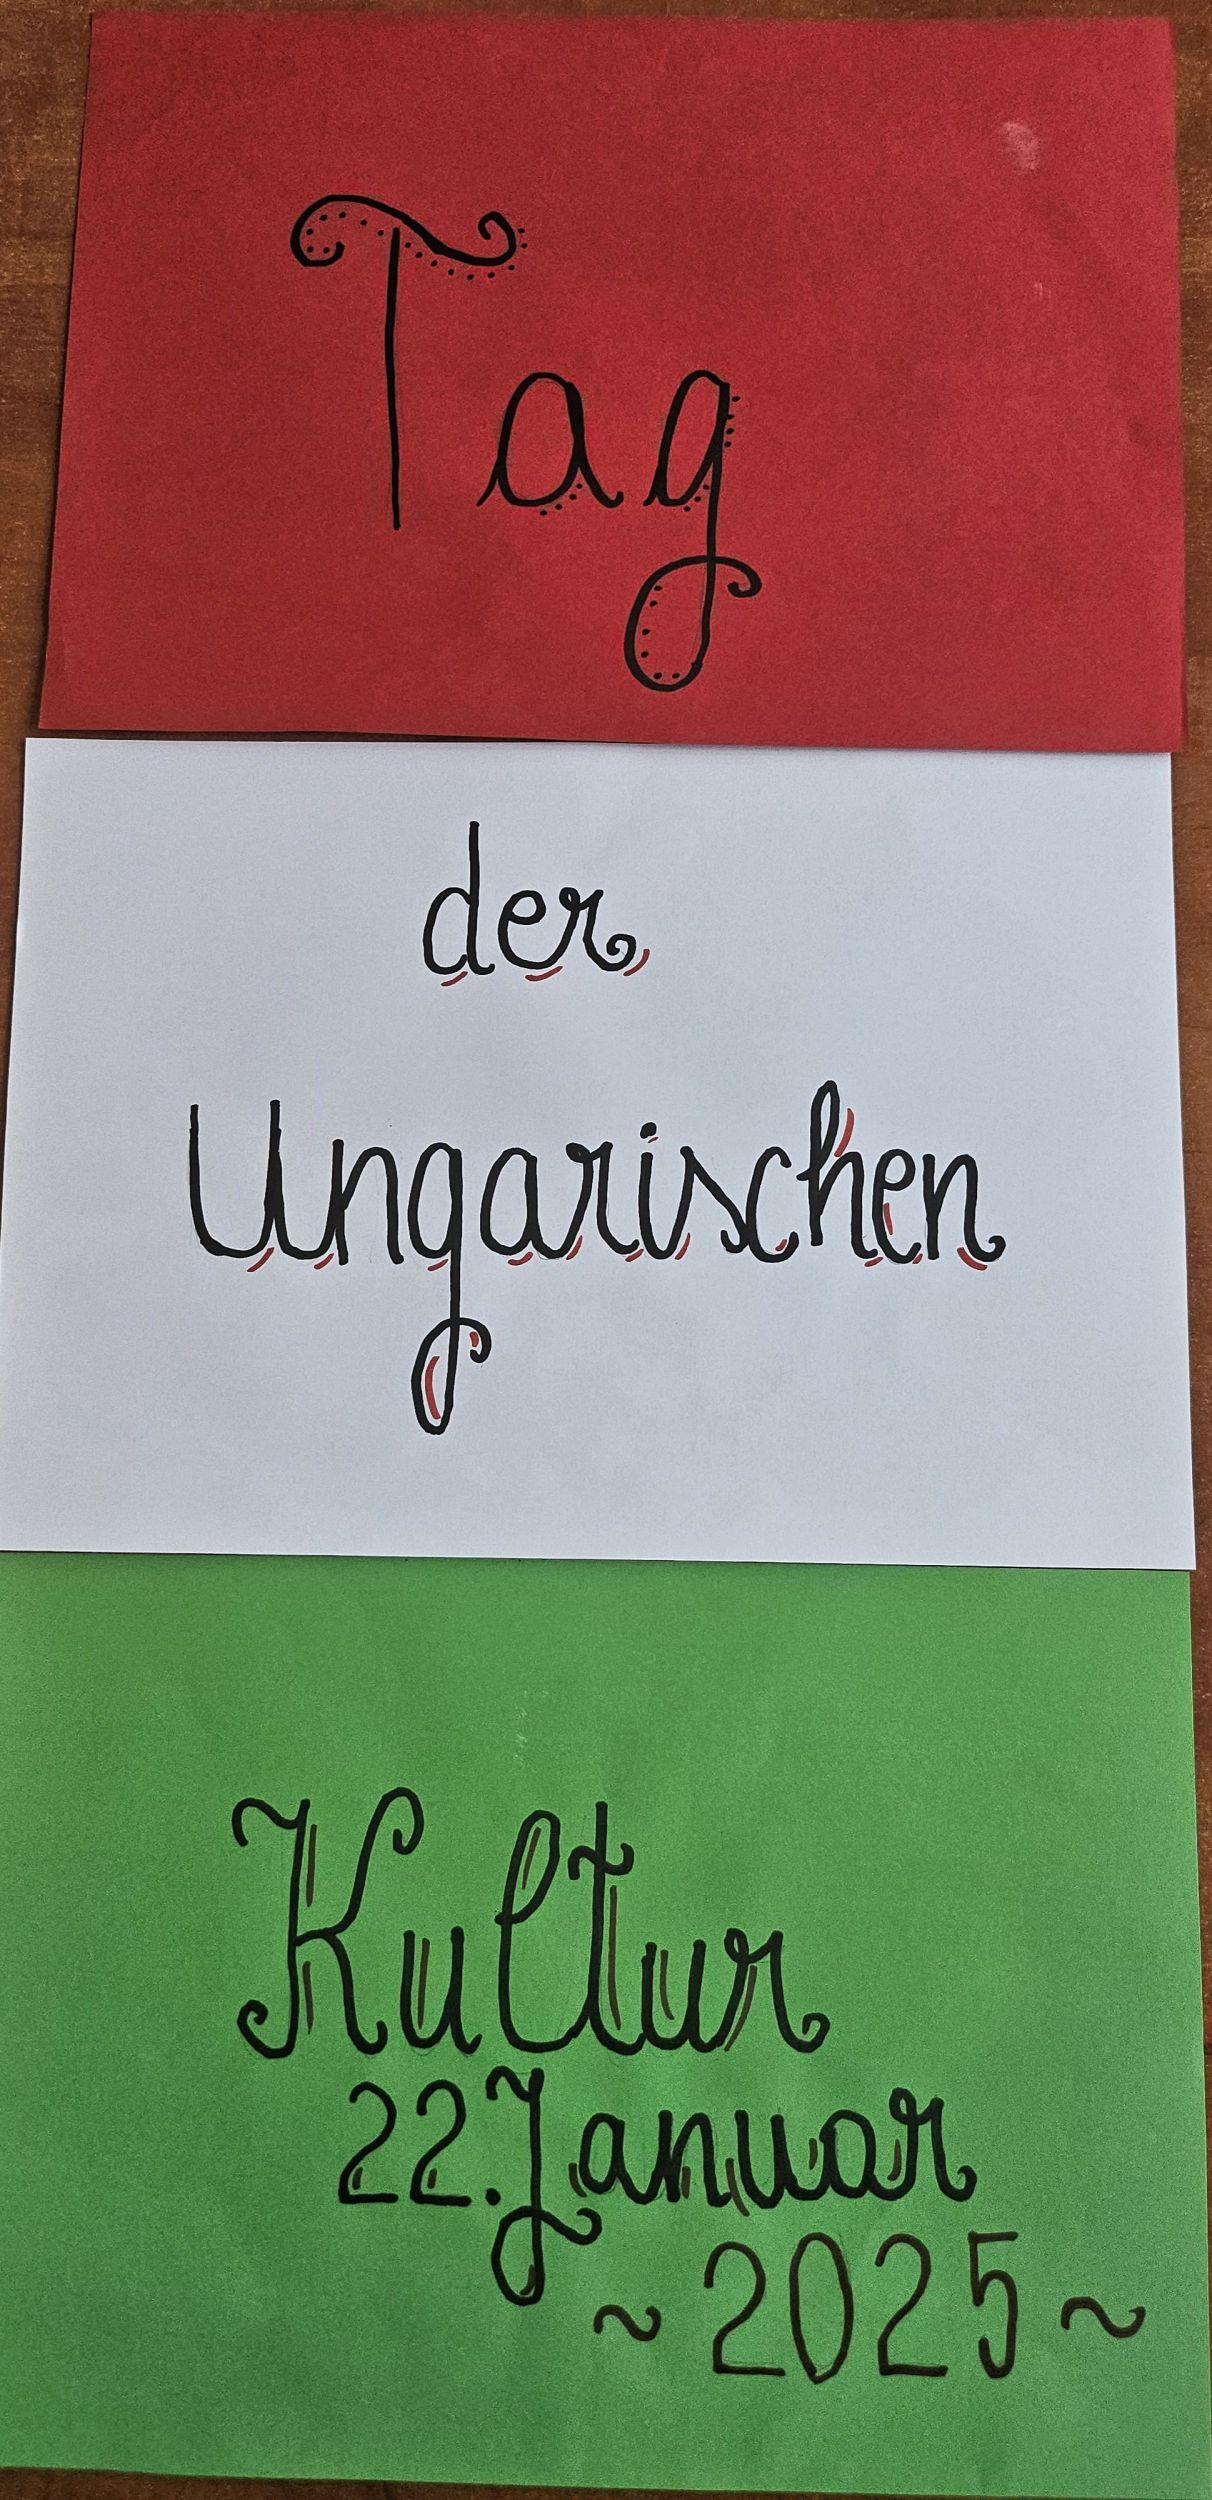 Tag
der
Ungarischen
Kultur
22. Januar
~ 2025 ~